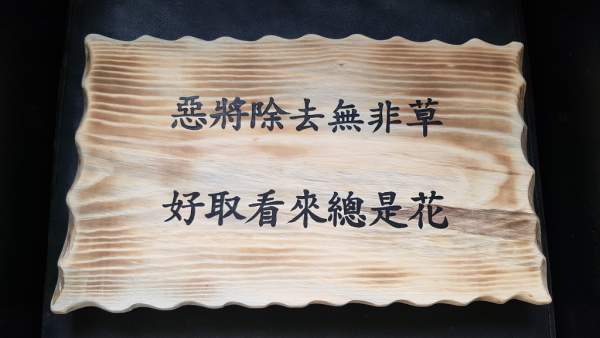 惡將除去無非草
好取看來總是花